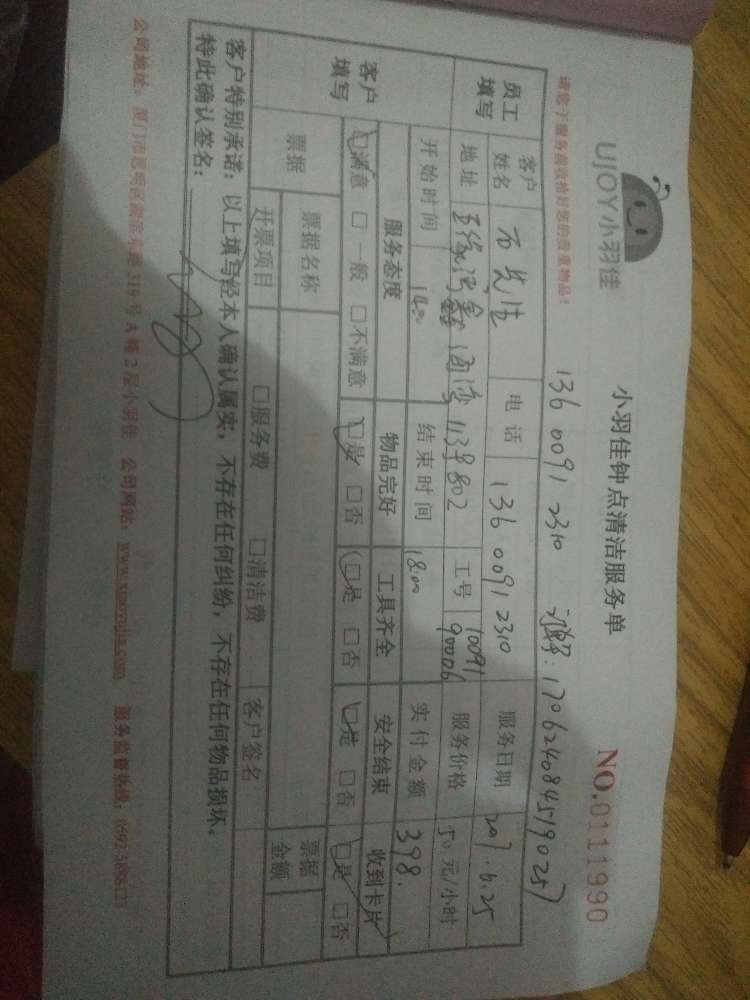 UJOY小羽佳
小羽佳钟点清洁服务单
NO.0111990
请您于服务前收拾好您的贵重物品!
136 0091 2310
170624084519025
员工填写
客户姓名
电话
136 0091 2310
服务日期
2017.6.25
地址
1139 802
工号
10091
90006
服务价格
50 元/小时
开始时间
14:00
结束时间
18:00
实付金额
398.
客户填写
服务态度
物品完好
工具齐全
安全结束
收到卡片
□满意 □一般 □不满意
□是 □否
□是 □否
□是 □否
□是 □否
票据
票据名称
票据金额
开票项目
□服务费
□清洁费
客户签名
客户特别承诺:以上填写经本人确认属实,不存在任何纠纷,不存在任何物品损坏。
特此确认签名:
公司地址:厦门市思明区湖滨东路 319 号 A 幢 2 层小羽佳 公司网站:www.xiaoyujia.com 服务监督热线: